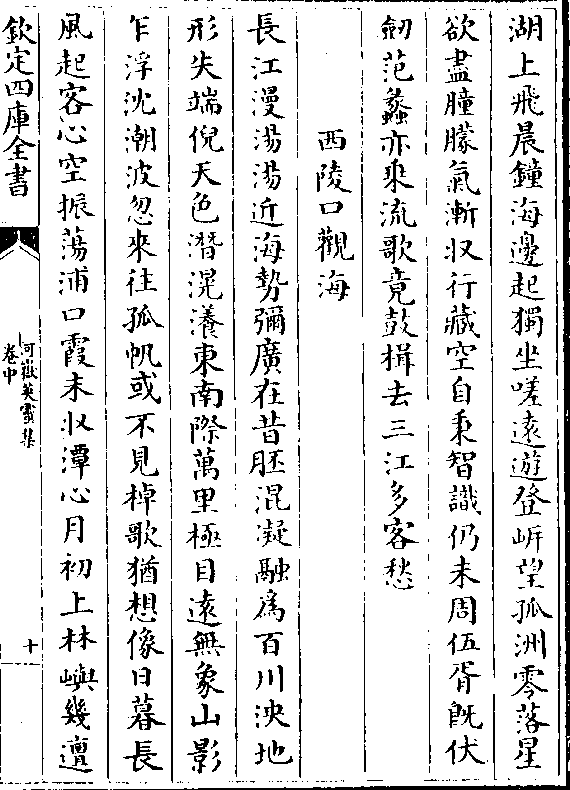 湖上飛晨鐘海邊起獨坐嗟遠遊登岍望孤洲零落星
欲盡朣朦氣漸収行藏空自秉智識仍未周伍胥既伏
劒范蠡亦乗流歌竟鼓楫去三江多客愁
西陵口觀海
長江漫湯湯近海勢彌廣在昔胚混凝融為百川泱地
形失端倪天色潛滉瀁東南際萬里極目遠無象山影
乍浮沈潮波忽來往孤帆或不見棹歌猶想像日暮長
風起客心空振蕩浦口霞未収潭心月初上林嶼幾邅
欽定四庫全書
河嶽英靈集
卷中
十